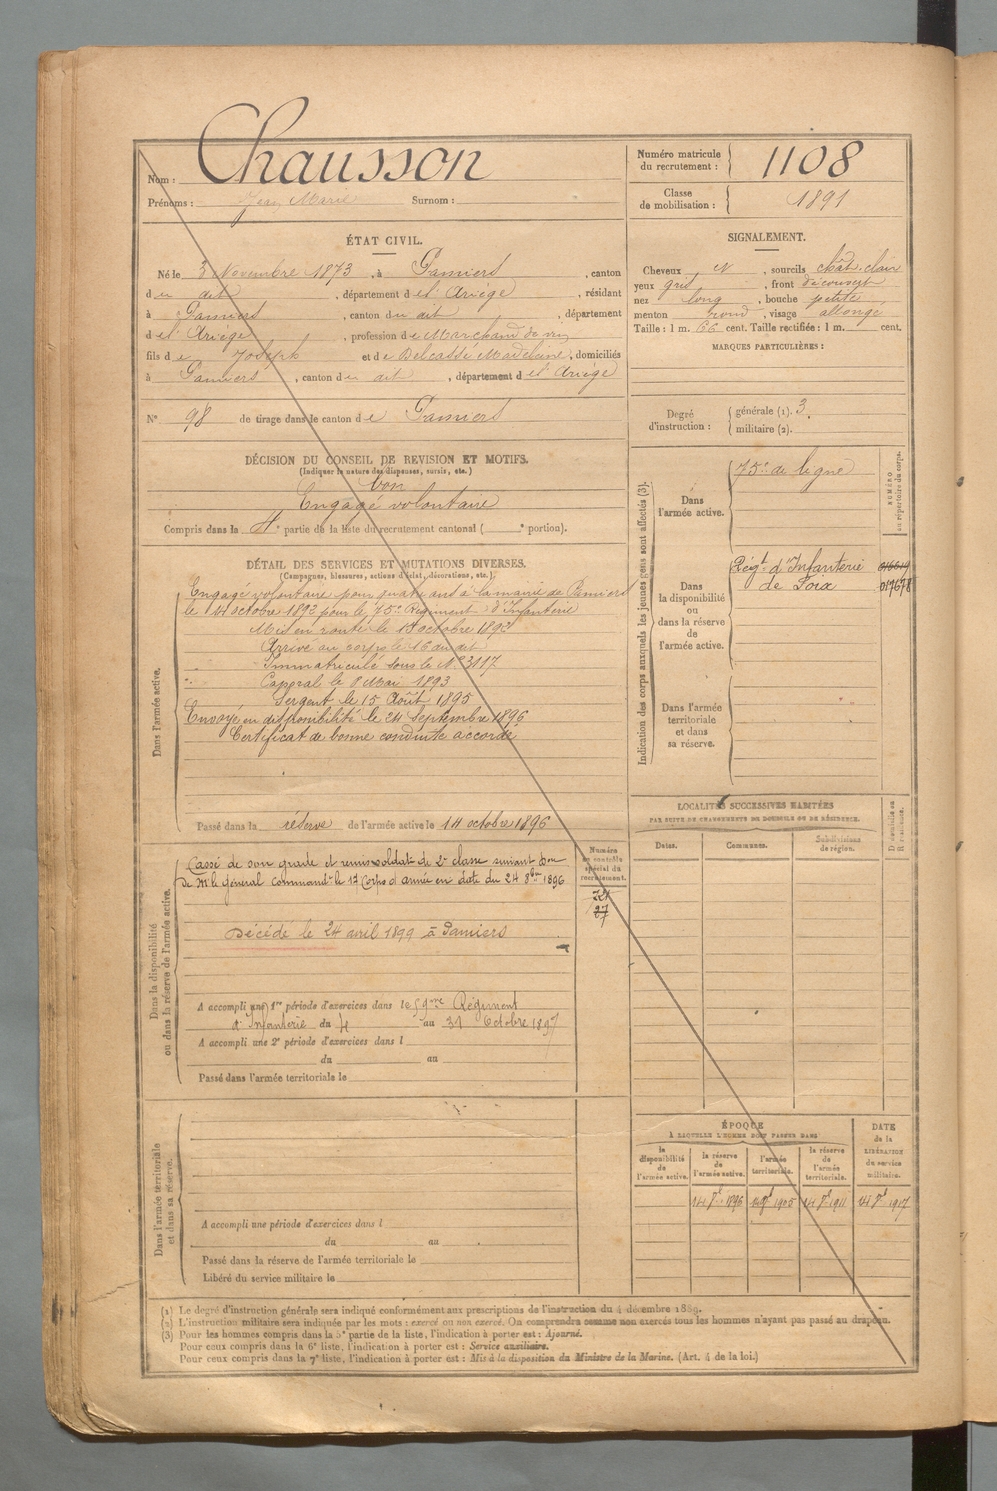 Nom : Chausson
Prénoms : Jean Marie Surnom :
Numéro matricule du recrutement : 1108
Classe de mobilisation : 1891
ÉTAT CIVIL.
Né le 3 Novembre 1873, à Pamiers, canton
du dit, département de l'Ariège, résidant
à Pamiers, canton du dit, département
de l'Ariège, profession de Marchand de vin
fils de Joseph et de Delcassé Madeleine, domiciliés
à Pamiers, canton du dit, département de l'Ariège
N° 98 de tirage dans le canton de Pamiers
SIGNALEMENT.
Cheveux N, sourcils chât. clair
yeux gris, front découvert
nez long, bouche petite
menton rond, visage allongé
Taille : 1 m. 66 cent. Taille rectifiée : 1 m. cent.
MARQUES PARTICULIÈRES :
Degré d'instruction : générale (1). 3.
militaire (2).
DÉCISION DU CONSEIL DE REVISION ET MOTIFS.
(Indiquer la nature des dispenses, sursis, etc.)
bon
Engagé volontaire
Compris dans la 4e partie de la liste du recrutement cantonal ( e portion).
DÉTAIL DES SERVICES ET MUTATIONS DIVERSES.
(Campagnes, blessures, actions d'éclat, décorations, etc.)
Dans l'armée active.
Engagé volontaire pour quatre ans à la mairie de Pamiers
le 14 octobre 1892 pour le 75e Régiment d'Infanterie
Mis en route le octobre 1892
Arrivé au corps le 16 du dit
Immatriculé sous le N° 3117
Caporal le 8 Mai 1893
Sergent le 15 Août 1895
Envoyé en disponibilité le 24 Septembre 1896
Certificat de bonne conduite accordé
Passé dans la réserve de l'armée active le 14 octobre 1896
Indication des corps auxquels les jeunes gens sont affectés (3).
NUMÉRO au répertoire du corps.
Dans l'armée active.
75e de ligne
Dans la disponibilité ou dans la réserve de l'armée active.
Régt d'Infanterie
de Foix 017678
Dans l'armée territoriale et dans sa réserve.
LOCALITÉS SUCCESSIVES HABITÉES
PAR SUITE DE CHANGEMENTS DE DOMICILE OU DE RÉSIDENCE.
Dates.
Communes.
Subdivisions de région.
D domicile ou R résidence.
Dans la disponibilité ou dans la réserve de l'armée active.
Numéro au contrôle spécial du recrutement.
Cassé de son grade et remis soldat de 2e classe suivant
de Mr le général commandt le 17 Corps d'armée en date du 24 8bre 1896
27
Décédé le 24 avril 1899 à Pamiers
A accompli une 1re période d'exercices dans le Régiment
d'Infanterie du 4 au 31 Octobre 1897
A accompli une 2e période d'exercices dans l
du au
Passé dans l'armée territoriale le
Dans l'armée territoriale et dans sa réserve.
A accompli une période d'exercices dans l
du au
Passé dans la réserve de l'armée territoriale le
Libéré du service militaire le
ÉPOQUE
À LAQUELLE L'HOMME DOIT PASSER DANS
la disponibilité de l'armée active.
la réserve de l'armée active.
l'armée territoriale.
la réserve de l'armée territoriale.
DATE de la LIBÉRATION du service militaire.
14 8e 1896
14 8e 1905
14 8e 1911
14 8e 1917
(1) Le degré d'instruction générale sera indiqué conformément aux prescriptions de l'instruction du 4 décembre 1889.
(2) L'instruction militaire sera indiquée par les mots : exercé ou non exercé. On comprendra comme non exercés tous les hommes n'ayant pas passé au drapeau.
(3) Pour les hommes compris dans la 5e partie de la liste, l'indication à porter est : Ajourné.
Pour ceux compris dans la 6e liste, l'indication à porter est : Service auxiliaire.
Pour ceux compris dans la 7e liste, l'indication à porter est : Mis à la disposition du Ministre de la Marine. (Art. 4 de la loi.)